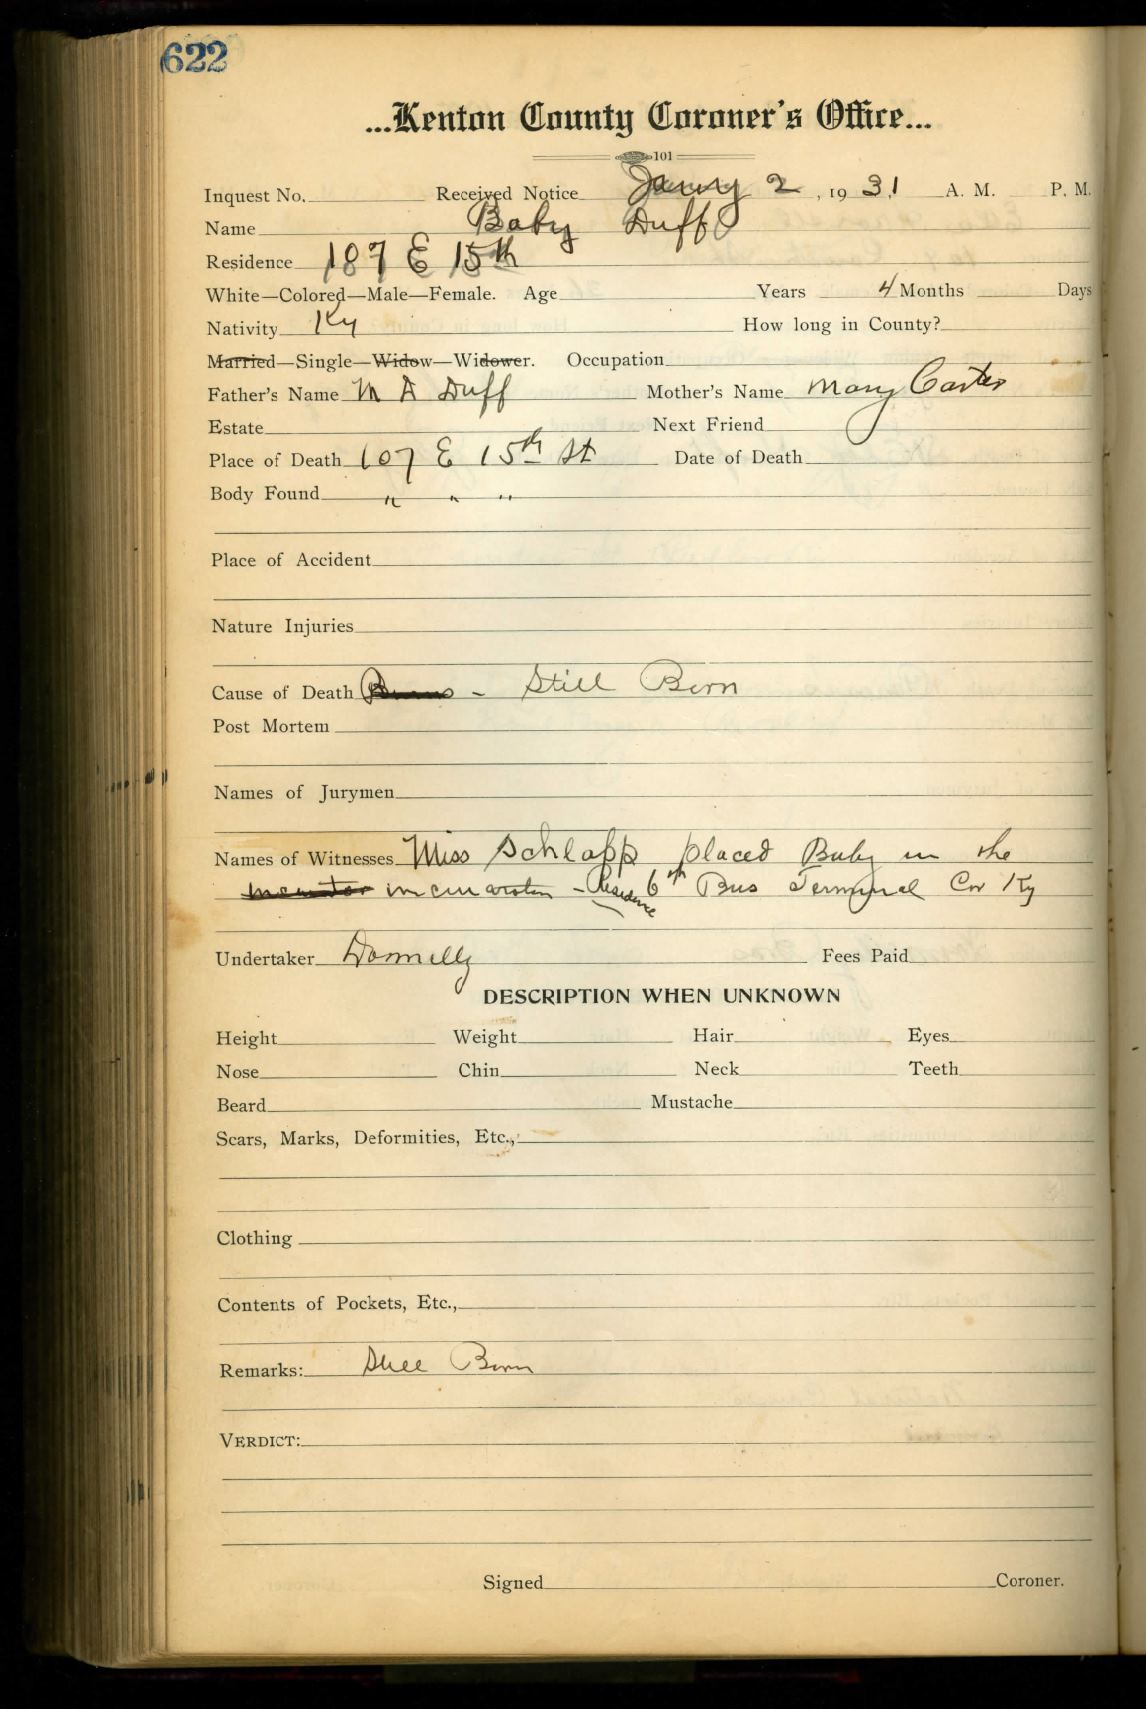 622
...Kenton County Coroner's Office...
101
Inquest No. Received Notice Jany 2, 1931 A. M. P. M.
Name Baby Duff
Residence 107 E 15th
White—Colored—Male—Female. Age Years 4 Months Days
Nativity Ky How long in County?
Married—Single—Widow—Widower. Occupation
Father's Name M A Duff Mother's Name Mary Carter
Estate Next Friend
Place of Death 107 E 15th St Date of Death
Body Found " " "
Place of Accident
Nature Injuries
Cause of Death Burns - Still Born
Post Mortem
Names of Jurymen
Names of Witnesses Miss Schlapp placed Baby in the
- Residence 6th Bus Terminal Cov Ky
Undertaker Donnelly Fees Paid
DESCRIPTION WHEN UNKNOWN
Height Weight Hair Eyes
Nose Chin Neck Teeth
Beard Mustache
Scars, Marks, Deformities, Etc.,
Clothing
Contents of Pockets, Etc.,
Remarks: Still Born
VERDICT:
Signed Coroner.